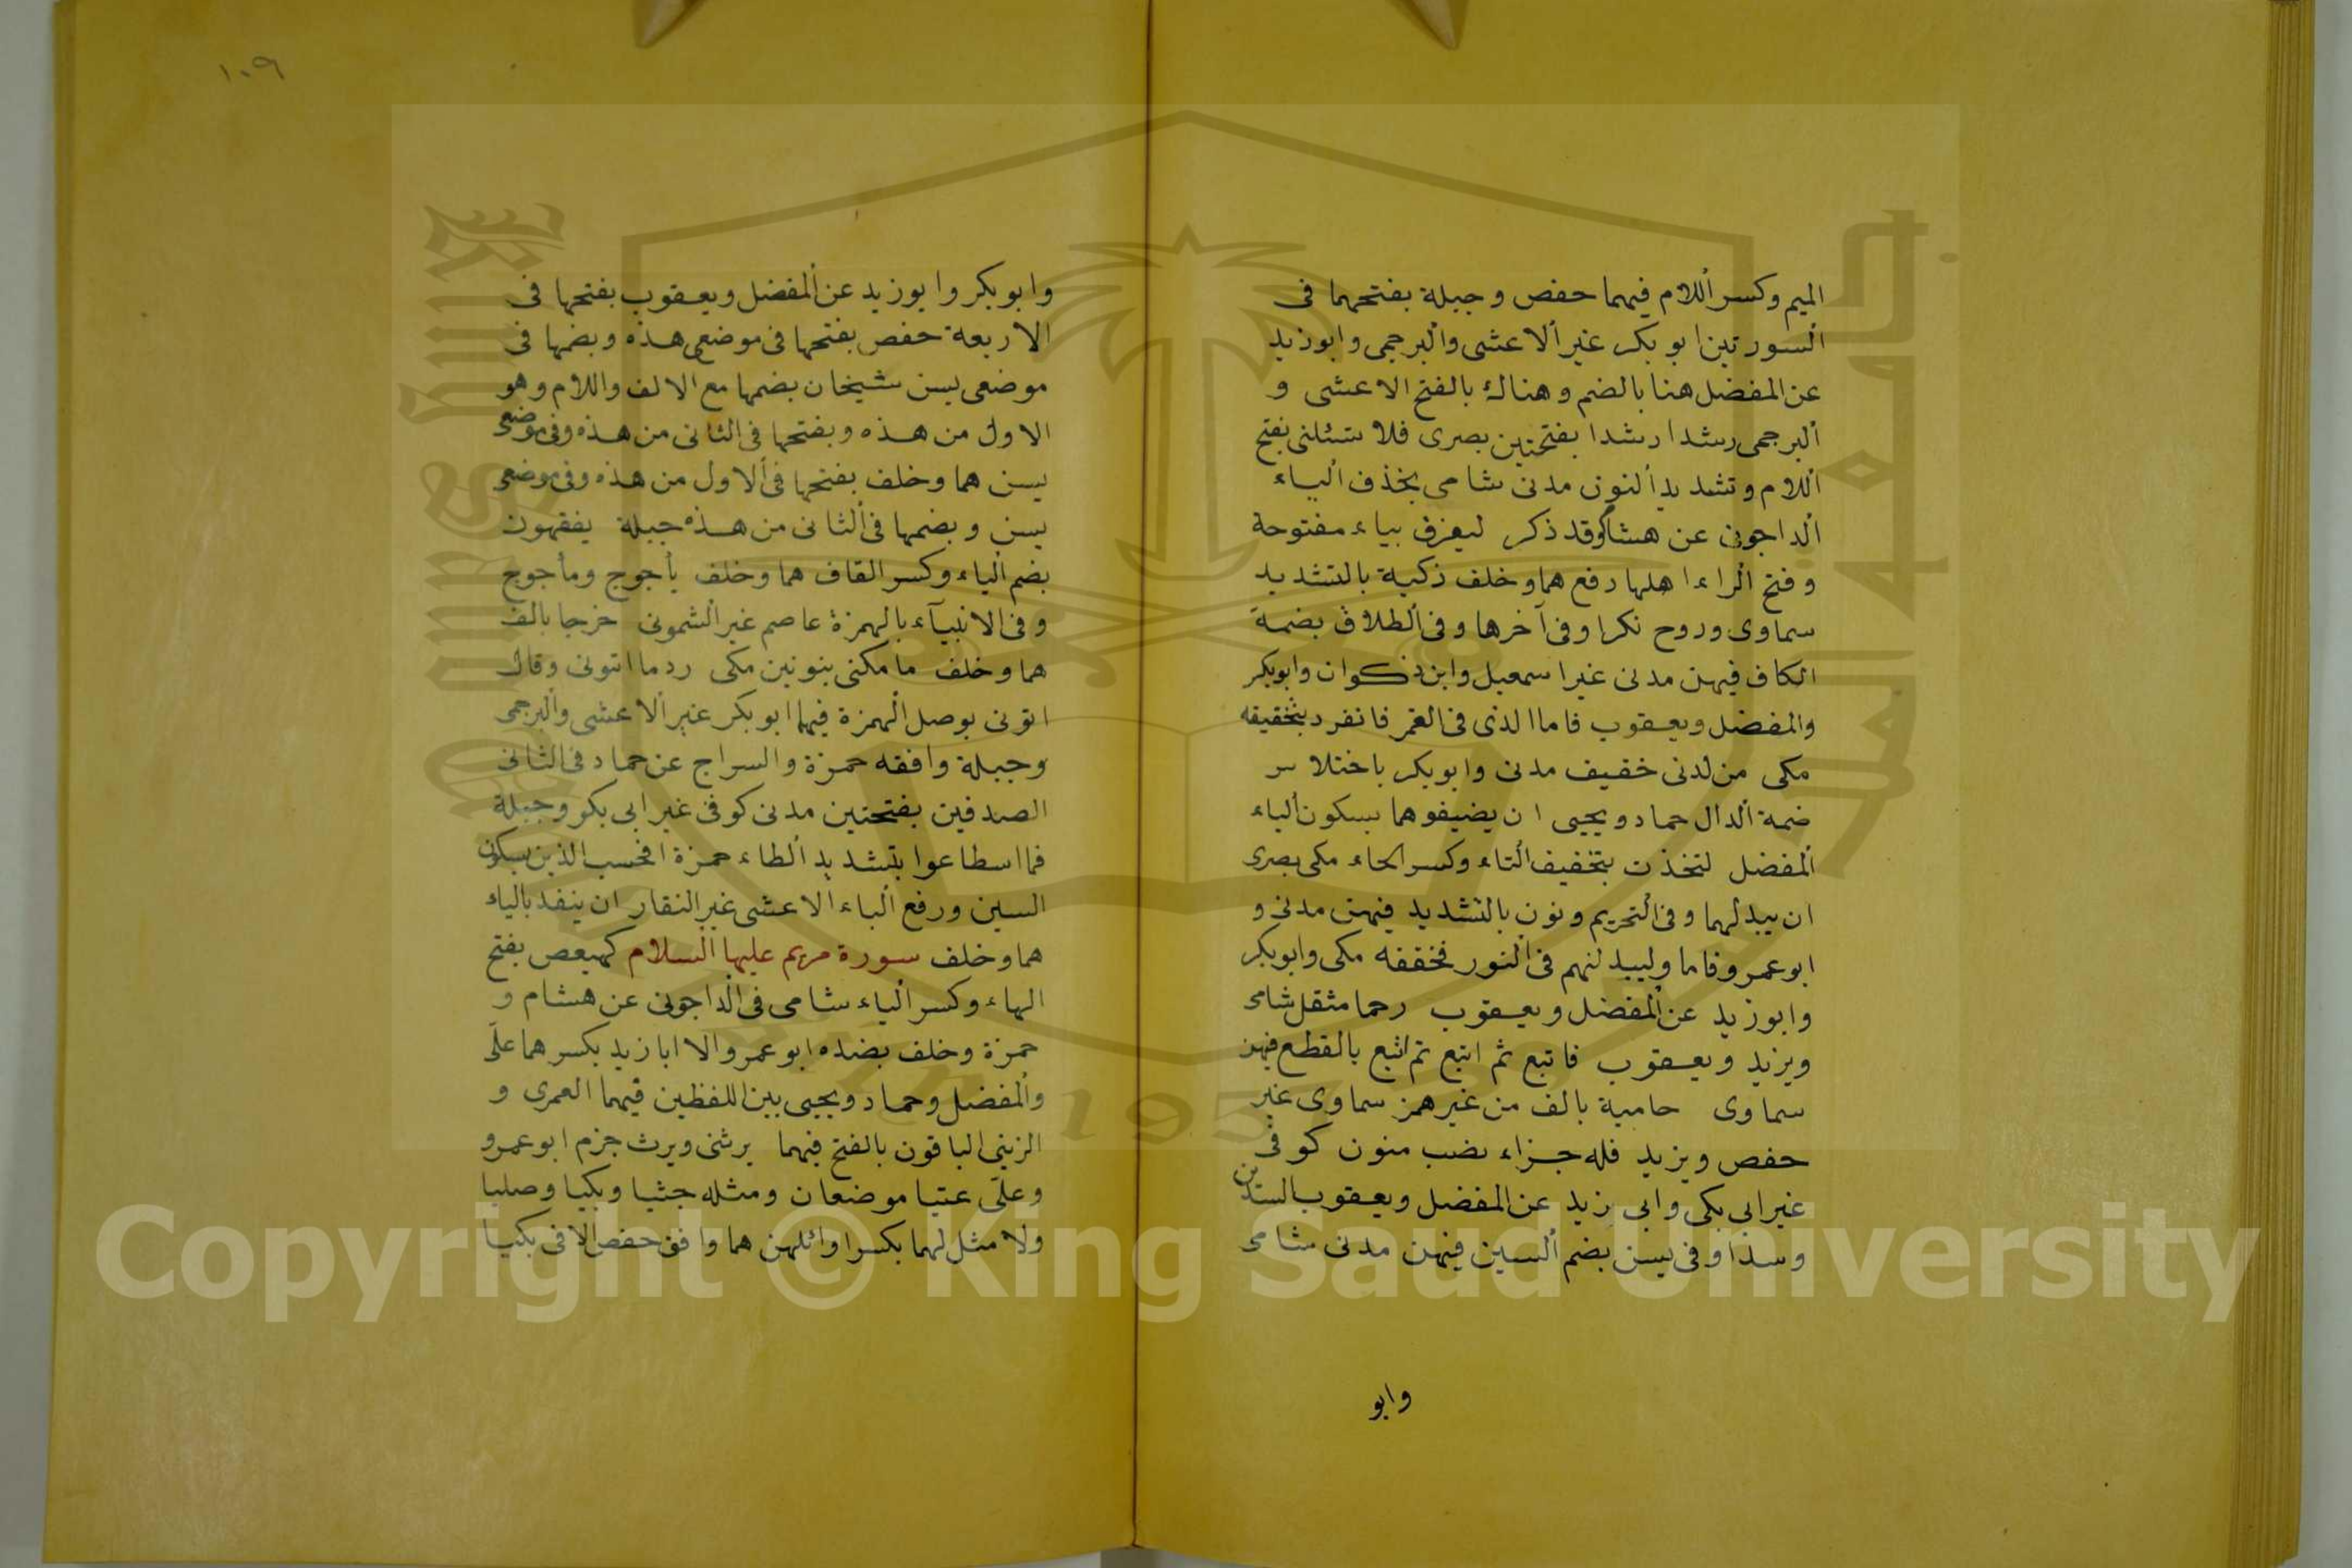 الميم وكسر اللام فيهما حفص وجبلة بفتحهما فى
السورتين ابو بكر غير الاعشى والبرجمى وابوزيد
عن المفضل هنا بالضم وهناك بالفتح الاعشى و
البرجمى رشدا رشدا بفتحتين بصرى فلا تسئلنى بفتح
اللام وتشديد النون مدنى شامى بحذف الياء
الداجونى عن هشام وقد ذكر ليغرق بياء مفتوحة
وفتح الراء اهلها رفع هما وخلف زكية بالتشديد
سماوى وروح نكرا وفى آخرها وفى الطلاق بضمة
الكاف فيهن مدنى غير اسمعيل وابن ذكوان وابوبكر
والمفضل ويعقوب فاما الذى فى القمر فانفرد بتخفيفه
مكى من لدنى خفيف مدنى وابوبكر باختلاس
ضمة الدال حماد ويحيى ان يضيفوهما بسكون الياء
المفضل لتخذت بتخفيف التاء وكسر الخاء مكى بصرى
ان يبدلهما وفى التحريم ونون بالتشديد فيهن مدنى و
ابو عمرو فاما وليبدلنهم فى النور فخففه مكى وابوبكر
وابوزيد عن المفضل ويعقوب رحما مثقل شامى
ويزيد ويعقوب فاتبع ثم اتبع ثم اتبع بالقطع فيهن
سماوى حامية بالف من غير همز سماوى غير
حفص ويزيد فله جزاء نصب منون كوفى
غير ابى بكر وابى زيد عن المفضل ويعقوب السدين
وسدا وفى يسن بضم السين فيهن مدنى شامى
وابو
١٠٩
وابوبكر وابوزيد عن المفضل ويعقوب بفتحها فى
الاربعة حفص بفتحها فى موضعى هذه وبضمها فى
موضعى يسن شيخان بضمها مع الالف واللام وهو
الاول من هذه وبفتحها فى الثانى من هذه وفى موضعى
يسن هما وخلف بفتحها فى الاول من هذه وفى موضعى
يسن وبضمها فى الثانى من هذه جبلة يفقهون
بضم الياء وكسر القاف هما وخلف يأجوج ومأجوج
وفى الانبيآء بالهمزة عاصم غير الشمونى خرجا بالف
هما وخلف ما مكنى بنونين مكى ردما اتونى وقال
اتونى بوصل الهمزة فيهما ابوبكر غير الاعشى والبرجمى
وجبلة وافقه حمزة والسراج عن حماد فى الثانى
الصدفين بفتحتين مدنى كوفى غير ابى بكر وجبلة
فما اسطاعوا بتشديد الطاء حمزة افحسب الذين بسكون
السين ورفع الباء الاعشى غير النقار ان ينفد بالياء
هما وخلف سورة مريم عليها السلام كهيعص بفتح
الهاء وكسر الياء شامى فى الداجونى عن هشام و
حمزة وخلف بضده ابو عمرو الا ابا زيد بكسرهما علىّ
والمفضل وحماد ويحيى بين اللفظين فيهما العمرى و
الزينبى الباقون بالفتح فيهما يرثنى ويرث جزم ابو عمرو
وعلىّ عتيا موضعان ومثله جثيا وبكيا وصليا
ولا مثل لهما بكسر اوائلهن هما وافق حفص الا فى بكيا
Copyright © King Saud University